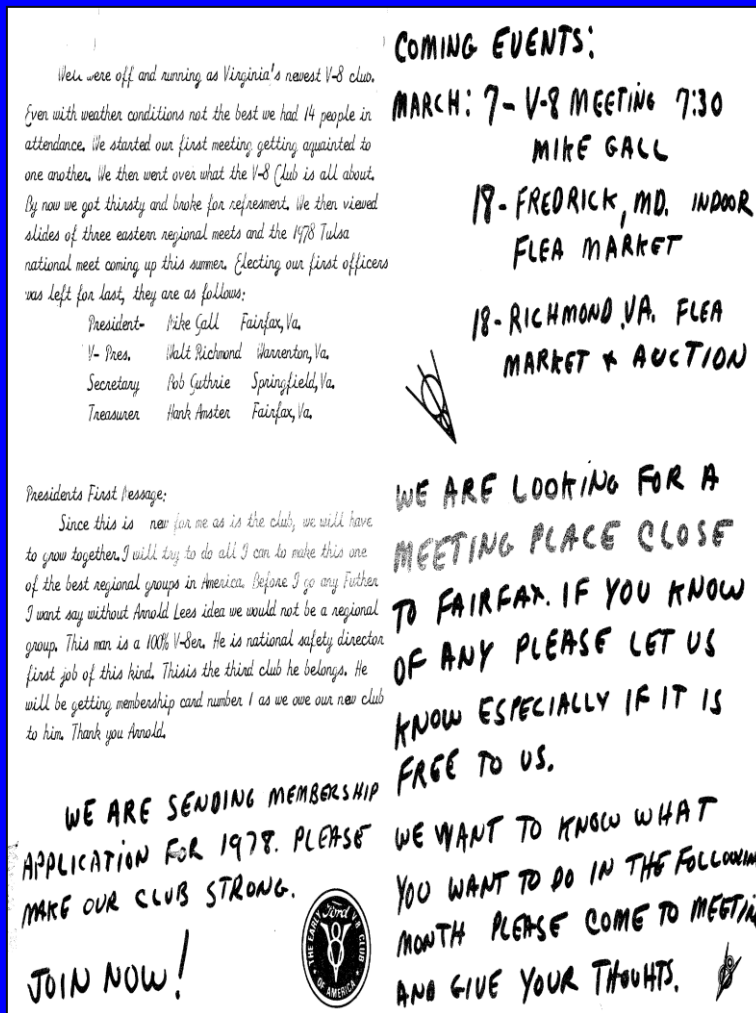 Well were off and running as Virginia's newest V-8 club.
Even with weather conditions not the best we had 14 people in
attendance. We started our first meeting getting aquainted to
one another. We then went over what the V-8 Club is all about.
By now we got thirsty and broke for refresment. We then viewed
slides of three eastern regional meets and the 1978 Tulsa
national meet coming up this summer. Electing our first officers
was left for last, they are as follows:
President- Mike Gall Fairfax, Va.
V- Pres. Walt Richmond Warrenton, Va.
Secretary Rob Guthrie Springfield, Va.
Treasurer Hank Amster Fairfax, Va.
Presidents First Message:
Since this is new for me as is the club, we will have
to grow together. I will try to do all I can to make this one
of the best regional groups in America. Before I go any Futher
I want say without Arnold Lees idea we would not be a regional
group. This man is a 100% V-8er. He is national safety director
first job of this kind. Thisis the third club he belongs. He
will be getting membership card number 1 as we owe our new club
to him. Thank you Arnold.
WE ARE SENDING MEMBERSHIP
APPLICATION FOR 1978. PLEASE
MAKE OUR CLUB STRONG.
JOIN NOW!
THE EARLY Ford V8 CLUB
OF AMERICA
COMING EVENTS:
MARCH: 7- V-8 MEETING 7:30
MIKE GALL
18- FREDRICK, MD. INDOOR
FLEA MARKET
18- RICHMOND, VA. FLEA
MARKET & AUCTION
WE ARE LOOKING FOR A
MEETING PLACE CLOSE
TO FAIRFAX. IF YOU KNOW
OF ANY PLEASE LET US
KNOW ESPECIALLY IF IT IS
FREE TO US.
WE WANT TO KNOW WHAT
YOU WANT TO DO IN THE FOLLOWIN
MONTH PLEASE COME TO MEETIN
AND GIVE YOUR THOUHTS.